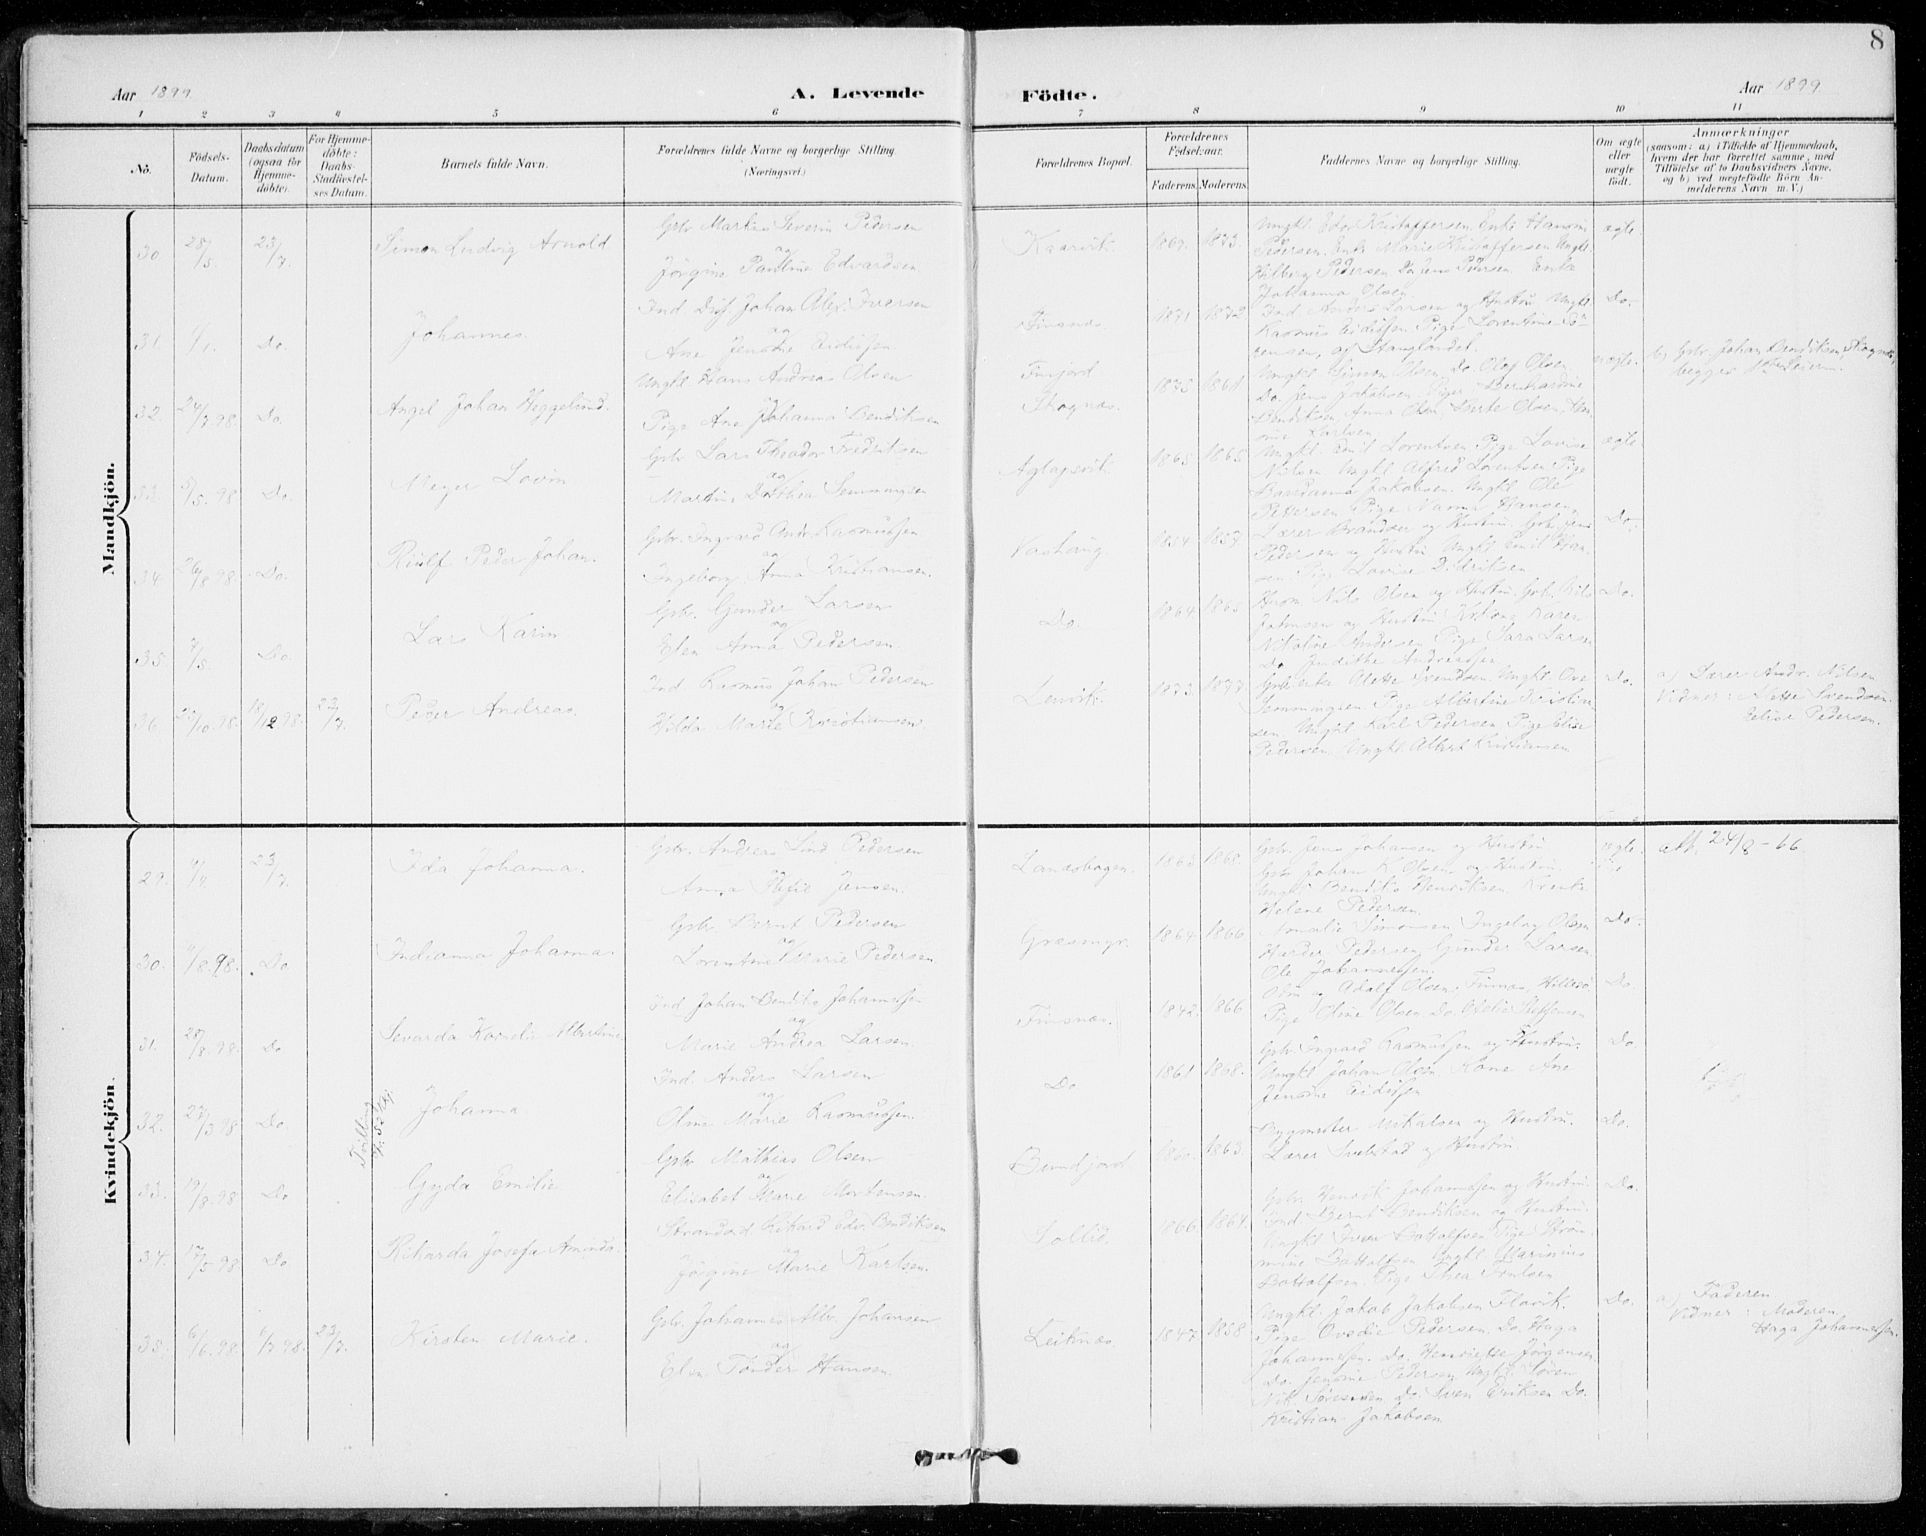 8
Aar 1899.
A. Levende
Födte.
Aar 1899
1 2 3 4 5 6 7 8 9 10 11
No.
Födsels-
Datum.
Daabsdatum
(ogsaa for
Hjemme-
döbte).
For Hjemme-
döbte:
Daabs-
Stadfæstel-
ses Datum.
Barnets fulde Navn.
Forældrenes fulde Navne og borgerlige Stilling
(Næringsvei.)
Forældrenes Bopæl.
Forældrenes
Fødselsaar.
Faderens.
Moderens.
Faddernes Navne og borgerlige Stilling.
Om ægte
eller
uægte
födt.
Anmærkninger
(saasom: a) i Tilfælde af Hjemmedaab,
hvem der har forrettet samme, med
Tilföielse af to Daabsvidners Navne.
og b) ved uægtefödte Börn An-
melderens Navn m. V.)
Mandkjön.
30 28/5. 23/7. Simon Ludvig Arnold
Gbr. Martin Severin Pedersen
og
Jörgine Pauline Edvardsen
Kaarvik. 1869. 1873.
Ungkl. Edv. Kristoffersen. Enke Hansine
Pedersen. Enke Marie Kristoffersen Ungkl.
Hilberg Pedersen Do Jens Pedersen. Enke
Johanna Olsen.
ægte.
31 Do. Johannes.
Ind. Diss. Johan Alex. Iversen
og
Ane Jensine Eidissen
Finsnes. 1871 1872
Ind Anders Larsen og Hustru Ungkl.
Rasmus Eidissen. Pige Lorentine Sö-
rensen, af Stanglandet.
Do.
32. 24/7.98. Do. Angel Johan Heggelund.
Ungkl Hans Andreas Olsen
og
Pige Ane Johanna Bendiksen
Finfjord
Skognes. 1875 1861
Ungkl. Simon Olsen. Do. Olaf Olsen
Do. Jens Jakobsen. Pige Bernhardine
Bendiksen, Anna Olsen, Berte Olsen,
Karlsen
uægte.
b) Gbr. Johan Bendiksen, Skognes,
begges
33. 5/5.98 Do. Meyer Lovin
Gbr Lars Theodor Fredriksen
og
Martine Dorthea Semmingsen
Aglapsvik. 1865 1865
Ungkl. Emil Lorentsen. Pige Lovise
Nilsen Ungkl. Alfred Lorentsen Pige
Jakobsen. Ungkl Ole
Pettersen Pige Nanna Hansen,
ægte.
34. 26/8.98. Do. Riulf Peder Johan.
Gbr. Ingvard Andr. Rasmussen
og
Ingeborg Anna Kristiansen.
Vashaug. 1854 1857
Lærer Brandser og Hustru, Gbr. Jens
Pedersen og Hustru Ungkl. Emil Han-
sen. Pige Lovise Didriksen
Do.
35. 7/5. Do. Lars Karin
Gbr. Gunder Larsen
og
Elen Anna Pedersen.
Do. 1864 1865
Husm. Nils Olsen og Hustru, Gbr. Nils
Johnsen og Hustru Karen
Nikoline Andersen Pige Sara Larsen
Do Judithe Andreassen
Do.
36 22/10.98. 18/12 98. 23/7. Peder Andreas.
Ind Rasmus Johan Pedersen
og
Hilda Marie Kristiansen.
Lenvik. 1873. 1877.
Gbrenke Alette Svendsen. Ungkl. Ove
Semmingsen. Pige Albertine Kristian-
sen. Ungkl. Karl Pedersen. Pige Elise
Pedersen. Ungkl. Albert Kristiansen
Do.
a) Lærer Andr. Nilsen
Vidner: Alette Svendsen.
Elise Pedersen.
Kvindekjön.
29. 4/4. 23/7. Ida Johanna.
Gbr. Andreas Lind Pedersen
og
Anna Sofie Jensen.
Landsbogen. 1863 1868.
Gbr. Jens Johansen og Hustru
Gbr Johan K. Olsen og Hustru.
Ungkl Bendiks Henriksen.
Helene Pedersen.
ægte.
att. 24/8-66.
30. 11/8.98. Do Indianna Johanna.
Gbr. Bernt Pedersen
og
Lorentine Marie Pedersen.
Græsmyr. 1864 1866
Amalie Simonsen Ingeborg Olsen
Harder Pedersen Gunder Larsen
Ole Johannessen.
Do.
31. 28/8.98. Do Sevarda Kornelie Albertine
Ind Johan Bendiks Johannessen
og
Marie Andrea Larsen.
Finsnes. 1842. 1866
og Adolf Olsen, Finnæs, Hillesö
Pige Oline Olsen Do. Ovelie Steffensen
Do.
32. 27/3 98 Do Johanna.
Ind. Anders Larsen
og
Oline Marie Rasmussen.
Do 1861 1868.
Gbr. Ingvard Rasmussen og Hustru.
Ungkl Johan Olsen. Kone Ane
Jensine Eidissen
Do
33. 19/8.98 Do Gyda Emilie
Gbr Mathias Olsen
og
Elisabet Marie Mortensen.
Bundfjord 1860. 1863.
Bygmester Mikalsen og Hustru.
Lærer Svelstad og Hustru
Do.
34. 17/5 98 Do Rikarda Josefa Aminda.
Strandsd. Rikard Edv. Bendiksen
og
Jörgine Marie Karlsen.
Sollid. 1866 1864.
Gbr. Henrik Johannessen og Hustru.
Ind. Bernt Bendiksen og Hustru.
Ungkl Iver Bottolfsen Pige
Bottolfsen Ungkl. Marinius
Bottolfsen. Pige Thea
Do.
35. 6/6.98. 6/7 98. 23/7. Kirsten Marie.
Gbr. Johannes Alb. Johansen
og
Elen Tönder Hansen.
Leiknæs. 1847 1858
Ungkl. Jakob Jakobsen Flavik.
Pige Ovedie Pedersen. Do. Haga
Johannessen. Do. Henriette Jörgensen.
Do. Jensine Pedersen. Ungkl. Sören
Nik. Sörensen Do. Sven Eriksen Do.
Kristian Jakobsen
Do.
a) Faderen
Vidner: Moderen,
Haga Johannessen.